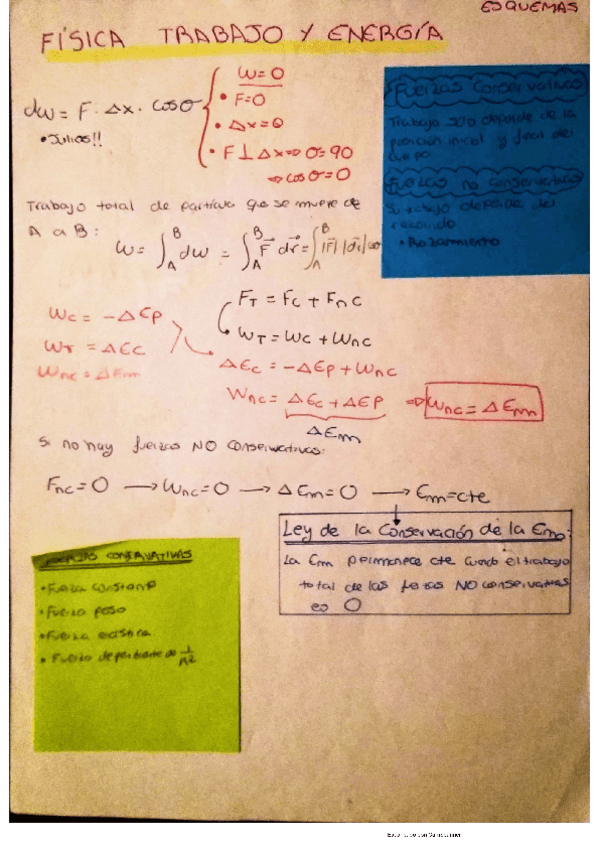 ESQUEMAS
FÍSICA TRABAJO Y ENERGÍA
dw = F · Δx · cosσ
• Julios!!
W=0
• F=0
• Δx=0
• F ⊥ Δx ⇒ σ=90
⇒ cosσ=0
Fuerzas Conservativas
Trabajo solo depende de la
posición inicial y final del
cuerpo
Fuerzas no conservativas
Su trabajo depende del
recorrido
• Rozamiento
Trabajo total de partícula que se mueve de
A a B:
W = ∫_A^B dw = ∫_A^B F⃗ dr⃗ = ∫_A^B |F⃗| |dr⃗| cos
F_T = F_C + F_nc
W_T = W_C + W_nc
W_C = -ΔEp
W_T = ΔEc
W_nc = ΔEm
ΔEc = -ΔEp + W_nc
W_nc = ΔEc + ΔEp ⇒ W_nc = ΔEm
ΔEm
Si no hay fuerzas NO conservativas:
F_nc=0 → W_nc=0 → ΔEm=0 → Em=cte
Ley de la Conservación de la Em:
La Em permanece cte cuando el trabajo
total de las fuerzas NO conservativas
es 0
FUERZAS CONSERVATIVAS
• Fuerza constante
• Fuerza peso
• Fuerza elástica
• Fuerza dependiente de 1/r²